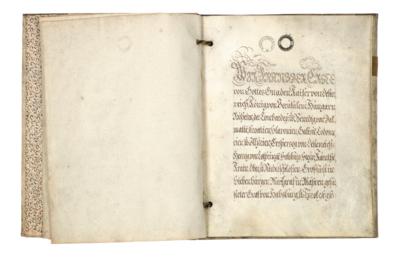 Wir Franz der Erste
von Gottes Gnaden Kaiser von Oester-
reich, König von Jerusalem Hungarn
Böheim, der Lombardey und Venedig, von Dal-
matien, Croatien, Slavonien, Galizien, Lodome-
rien und Illyrien; Erzherzog von Oesterreich;
Herzog von Lothringen, Salzburg, Steyer, Kärnthen,
Krain, Ober- und Niederschlesien; Großfürst in
Siebenbürgen; Markgraf in Mähren; gefür-
steter Graf von Habsburg und Tyrol